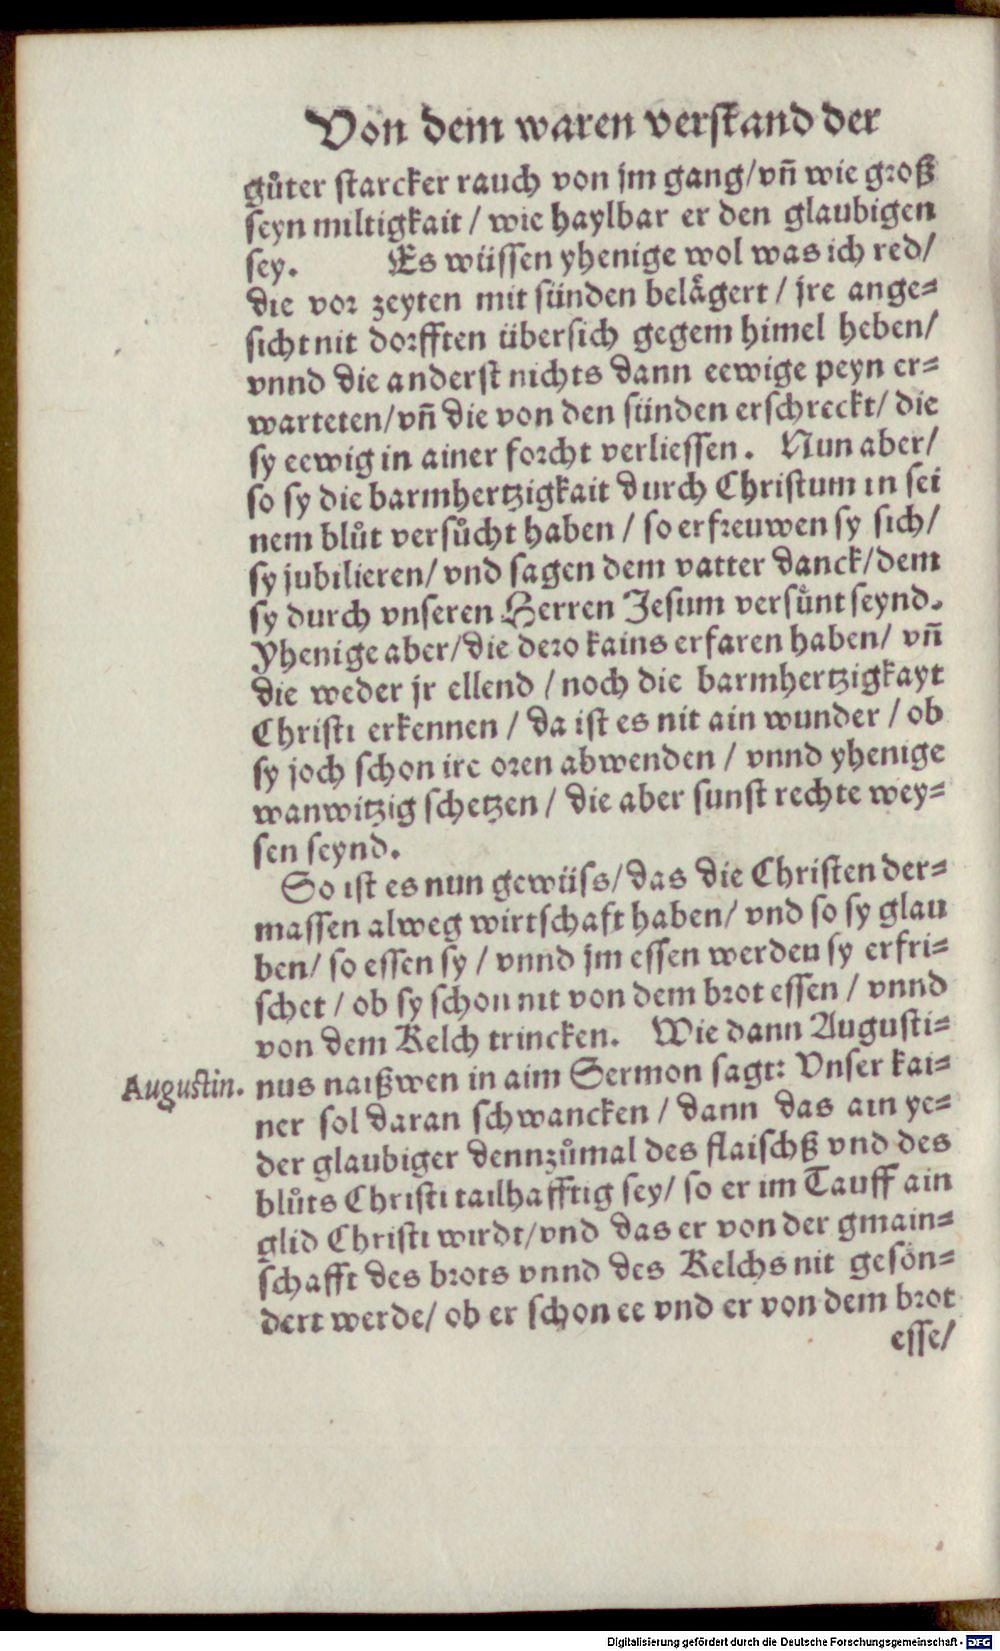 Von dem waren verstand der
guͦter starcker rauch von jm gang/vñ wie groß
seyn miltigkait / wie haylbar er den glaubigen
sey. Es wüssen yhenige wol was ich red/
die vor zeyten mit sünden belaͤgert / jre ange⸗
sicht nit dorfften übersich gegem himel heben/
vnnd die anderst nichts dann eewige peyn er⸗
warteten/vñ die von den sünden erschreckt/ die
sy eewig in ainer forcht verliessen. Nun aber/
so sy die barmhertzigkait durch Christum in sei
nem bluͦt versuͦcht haben / so erfreuwen sy sich/
sy jubilieren/ vnd sagen dem vatter danck/dem
sy durch vnseren Herren Jesum versuͤnt seynd.
Yhenige aber/die dero kains erfaren haben/ vñ
die weder jr ellend / noch die barmhertzigkayt
Christi erkennen / da ist es nit ain wunder / ob
sy joch schon ire oren abwenden / vnnd yhenige
wanwitzig schetzen / die aber sunst rechte wey⸗
sen seynd.
So ist es nun gewüss/das die Christen der⸗
massen alweg wirtschaft haben/ vnd so sy glau
ben/ so essen sy / vnnd jm essen werden sy erfri⸗
schet / ob sy schon nit von dem brot essen / vnnd
von dem Kelch trincken. Wie dann Augusti⸗
Augustin. nus naißwen in aim Sermon sagt: Vnser kai⸗
ner sol daran schwancken / dann das ain ye⸗
der glaubiger dennzuͦmal des flaischß vnd des
bluͦts Christi tailhafftig sey/ so er im Tauff ain
glid Christi wirdt/vnd das er von der gmain⸗
schafft des brots vnnd des Kelchs nit gesoͤn⸗
dert werde/ ob er schon ee vnd er von dem brot
esse/
Digitalisierung gefördert durch die Deutsche Forschungsgemeinschaft - DFG